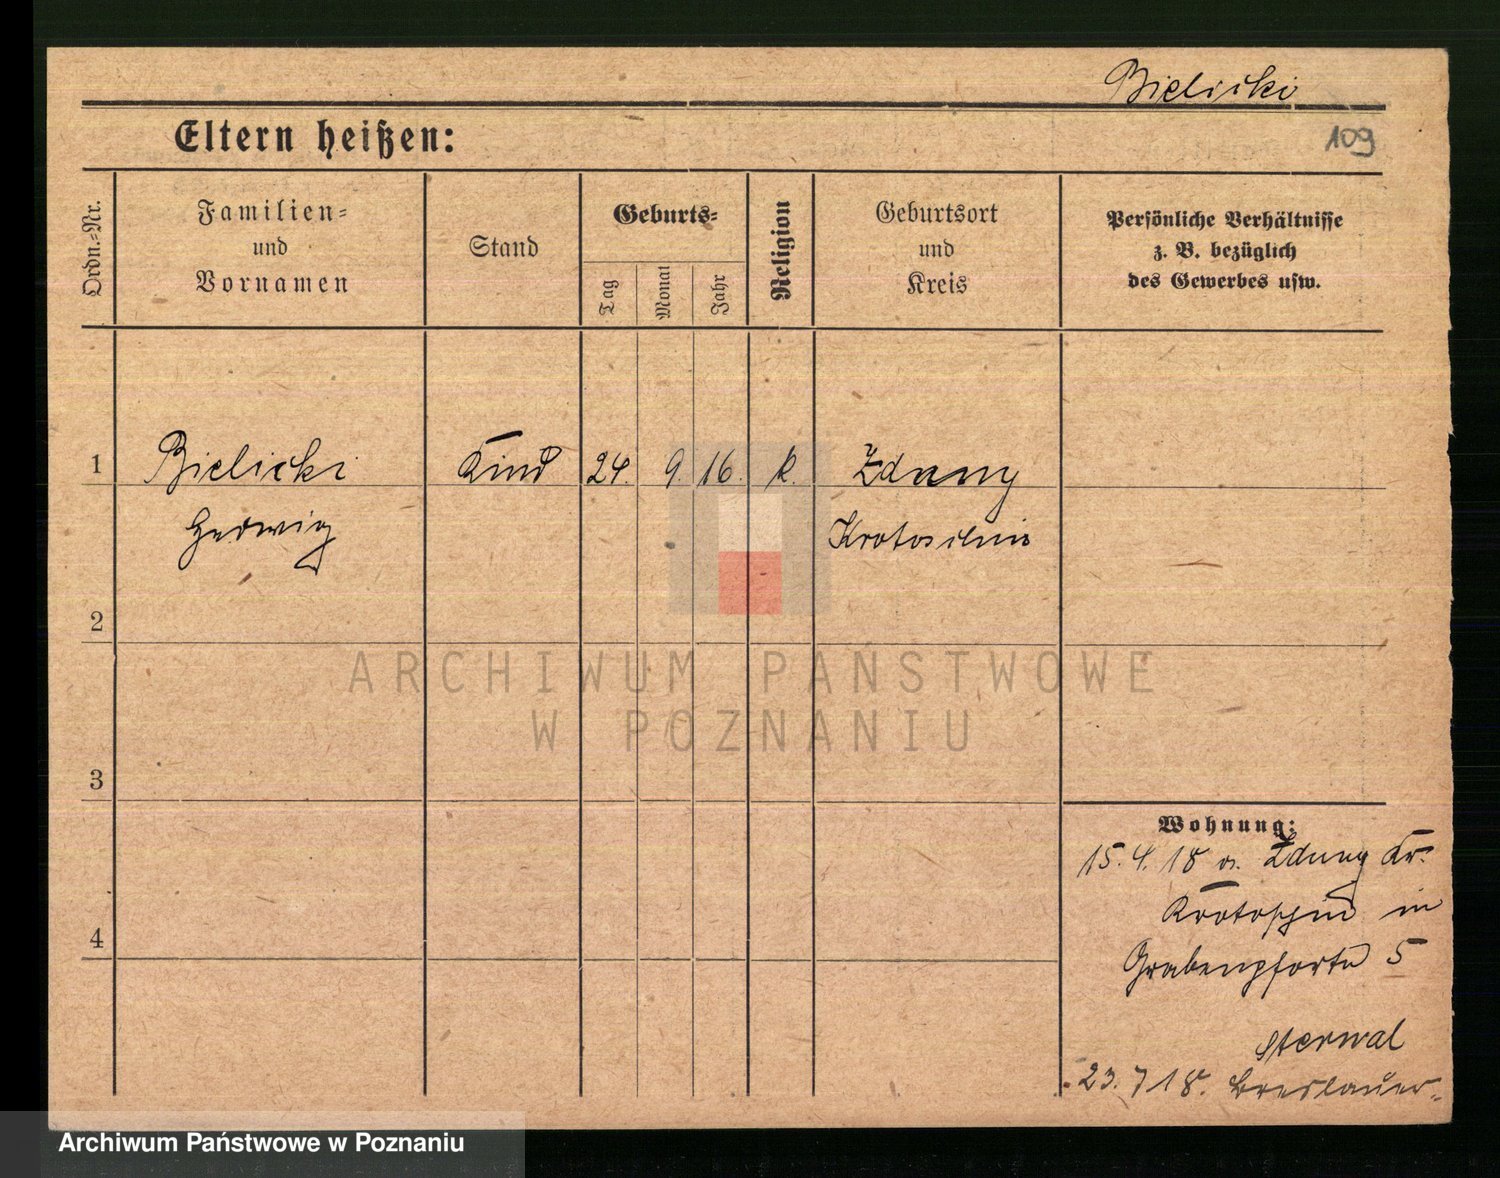 Bielicki
109
Eltern heißen:
Ordn.-Nr.
Familien-
und
Vornamen
Stand
Geburts-
Tag
Monat
Jahr
Religion
Geburtsort
und
Kreis
Persönliche Verhältnisse
z. B. bezüglich
des Gewerbes usw.
1 Bielicki Kind 24. 9. 16. k. Zduny
Hedwig Krotoschin
2
3
4
ARCHIWUM PAŃSTWOWE
W POZNANIU
Wohnung:
15. 4. 18 v. Zduny Kr.
Krotoschin in
Grabenpforte 5
23. 7 18. Breslauer-
Archiwum Państwowe w Poznaniu